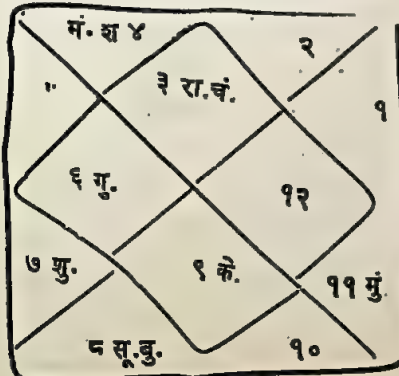 मं. श ४
२
३ रा.चं.
१
६ गु.
१२
७ शु.
९ के.
११ मुं
८ सू.बु.
१०